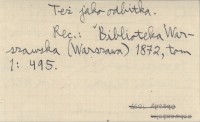 Też jako odbitka.
Rec.: "Biblioteka War-
szawska (Warszawa) 1872, tom
1: 495.